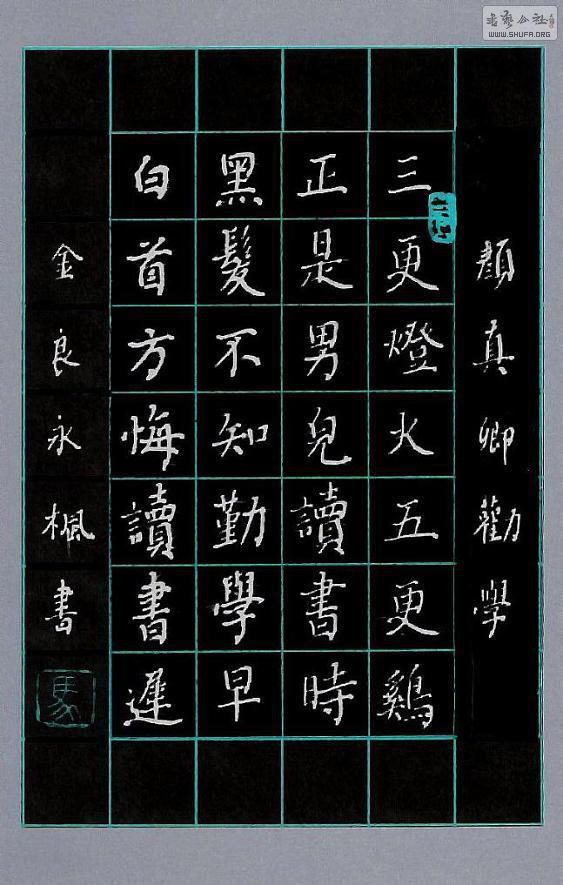 書藝公社
WWW.SHUFA.ORG
顏真卿勸學
三更燈火五更鷄
正是男兒讀書時
黑髮不知勤學早
白首方悔讀書遲
金良永楓書